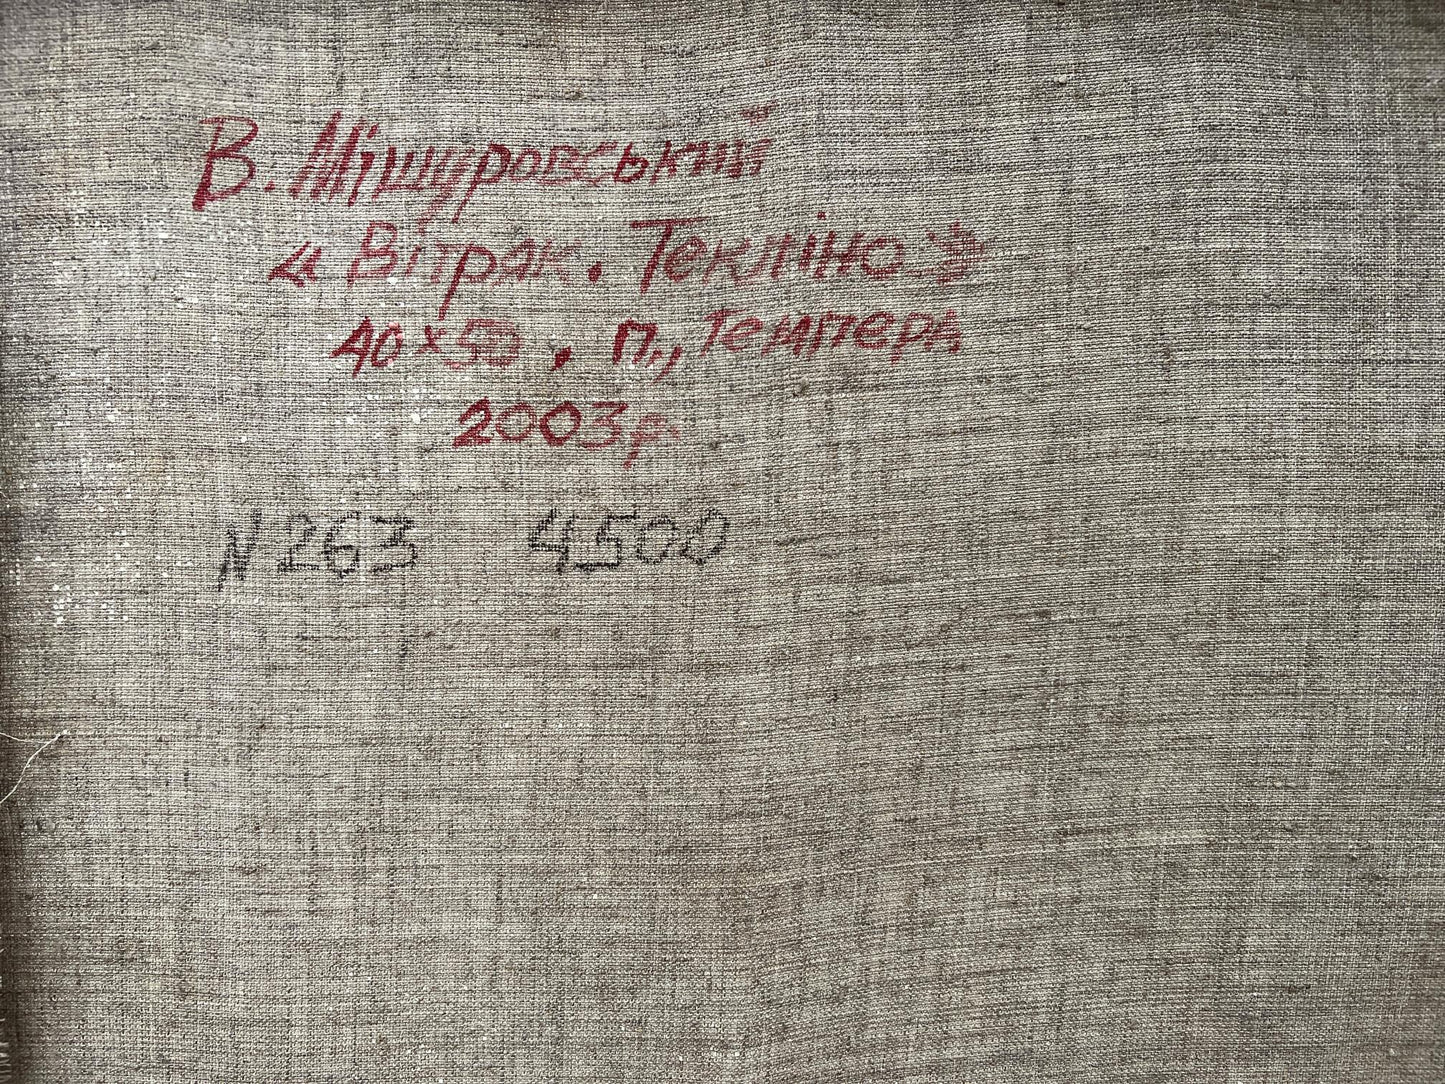 В. Мішуровський
« Вітряк. Текліно »
40х50, п., темпера
2003р.
N263 4500